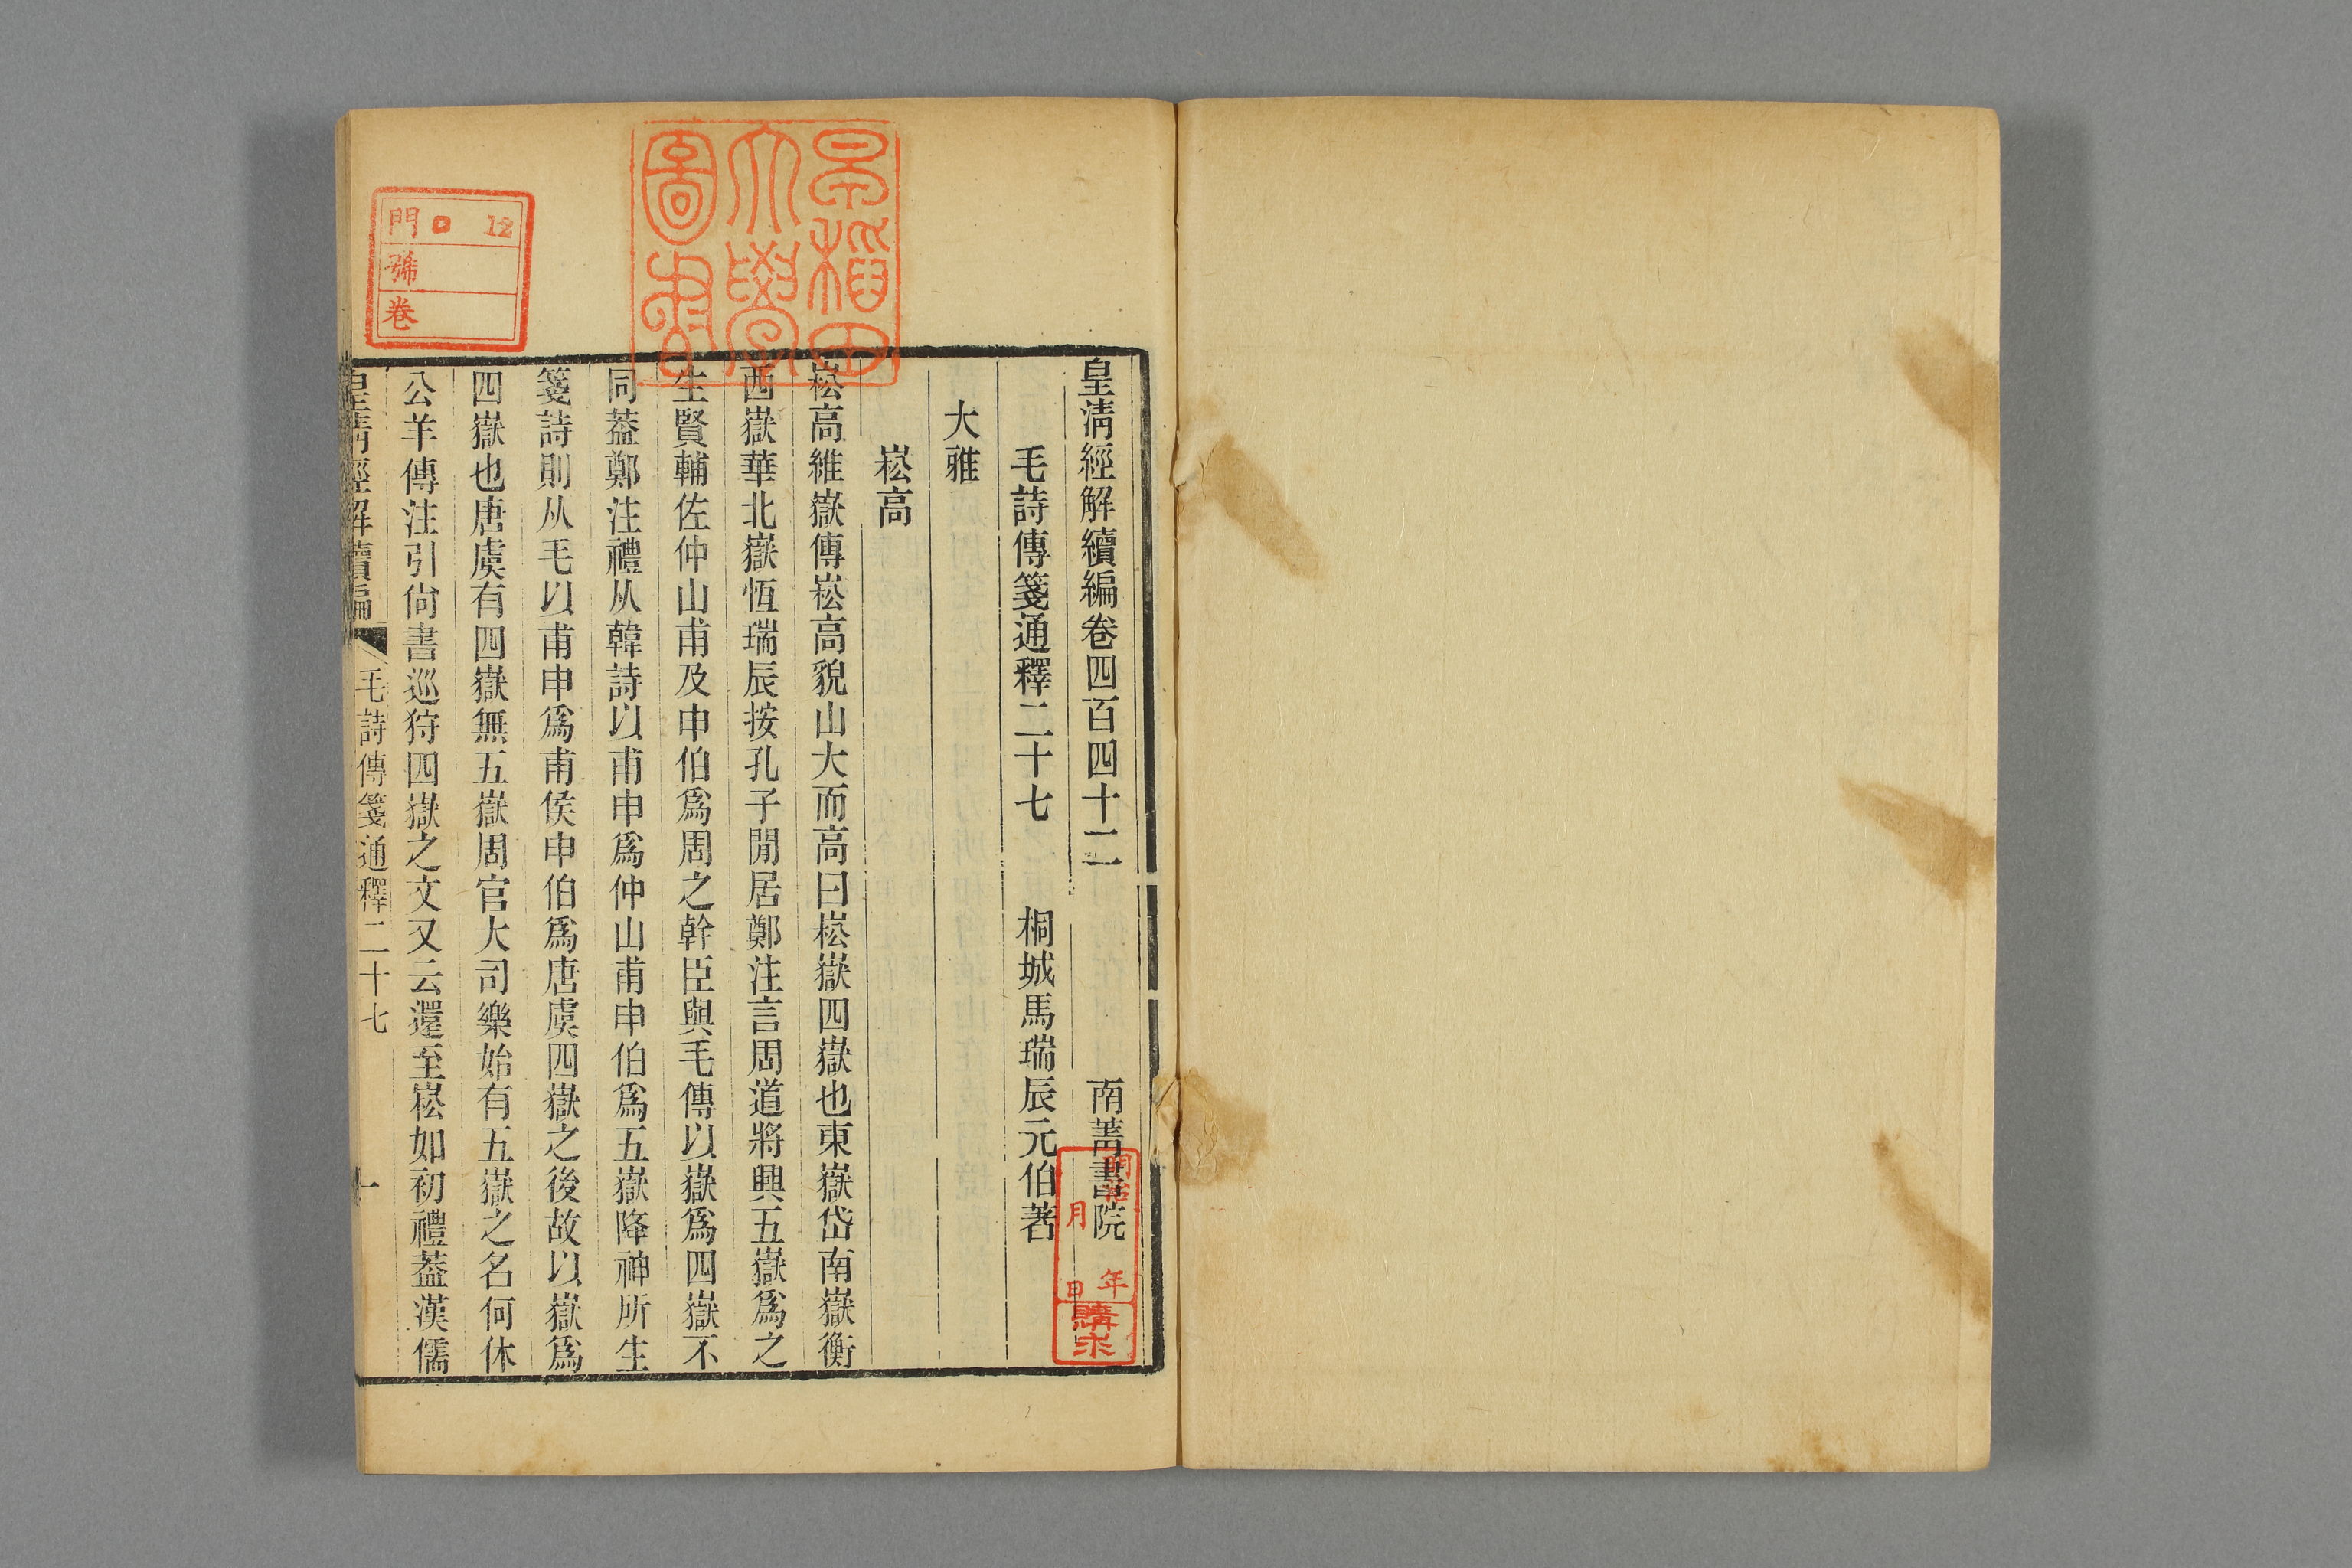 皇清經解續編卷四百四十二　南菁書院
毛詩傳箋通釋二十七　桐城馬瑞辰元伯著
大雅
崧高
崧高維嶽傳崧高貌山大而高曰崧嶽四嶽也東嶽岱南嶽衡
西嶽華北嶽恆瑞辰按孔子閒居鄭注言周道將興五嶽爲之
生賢輔佐仲山甫及申伯爲周之幹臣與毛傳以嶽爲四嶽不
同葢鄭注禮从韓詩以甫申爲仲山甫申伯爲五嶽降神所生
箋詩則从毛以甫申爲甫侯申伯爲唐虞四嶽之後故以嶽爲
四嶽也唐虞有四嶽無五嶽周官大司樂始有五嶽之名何休
公羊傳注引尙書巡狩四嶽之文又云還至崧如初禮葢漢儒
皇淸經解續編　毛詩傳箋通釋二十七　一
早稻田
大學
圖書
門 12
號
卷
年
月
日
購求